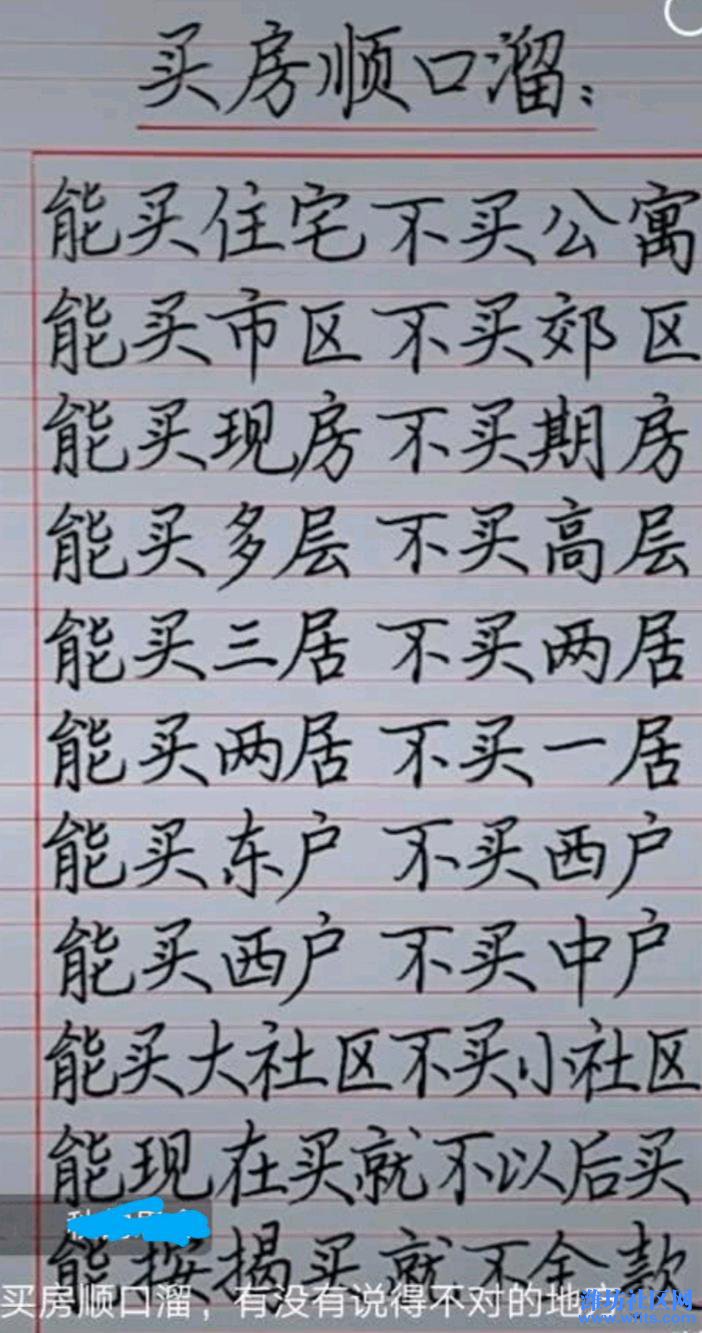 买房顺口溜:
能买住宅不买公寓
能买市区不买郊区
能买现房不买期房
能买多层不买高层
能买三居不买两居
能买两居不买一居
能买东户不买西户
能买西户不买中户
能买大社区不买小社区
能现在买就不以后买
能按揭买就不全款
买房顺口溜，有没有说得不对的地方
潍坊社区网
www.wfits.com